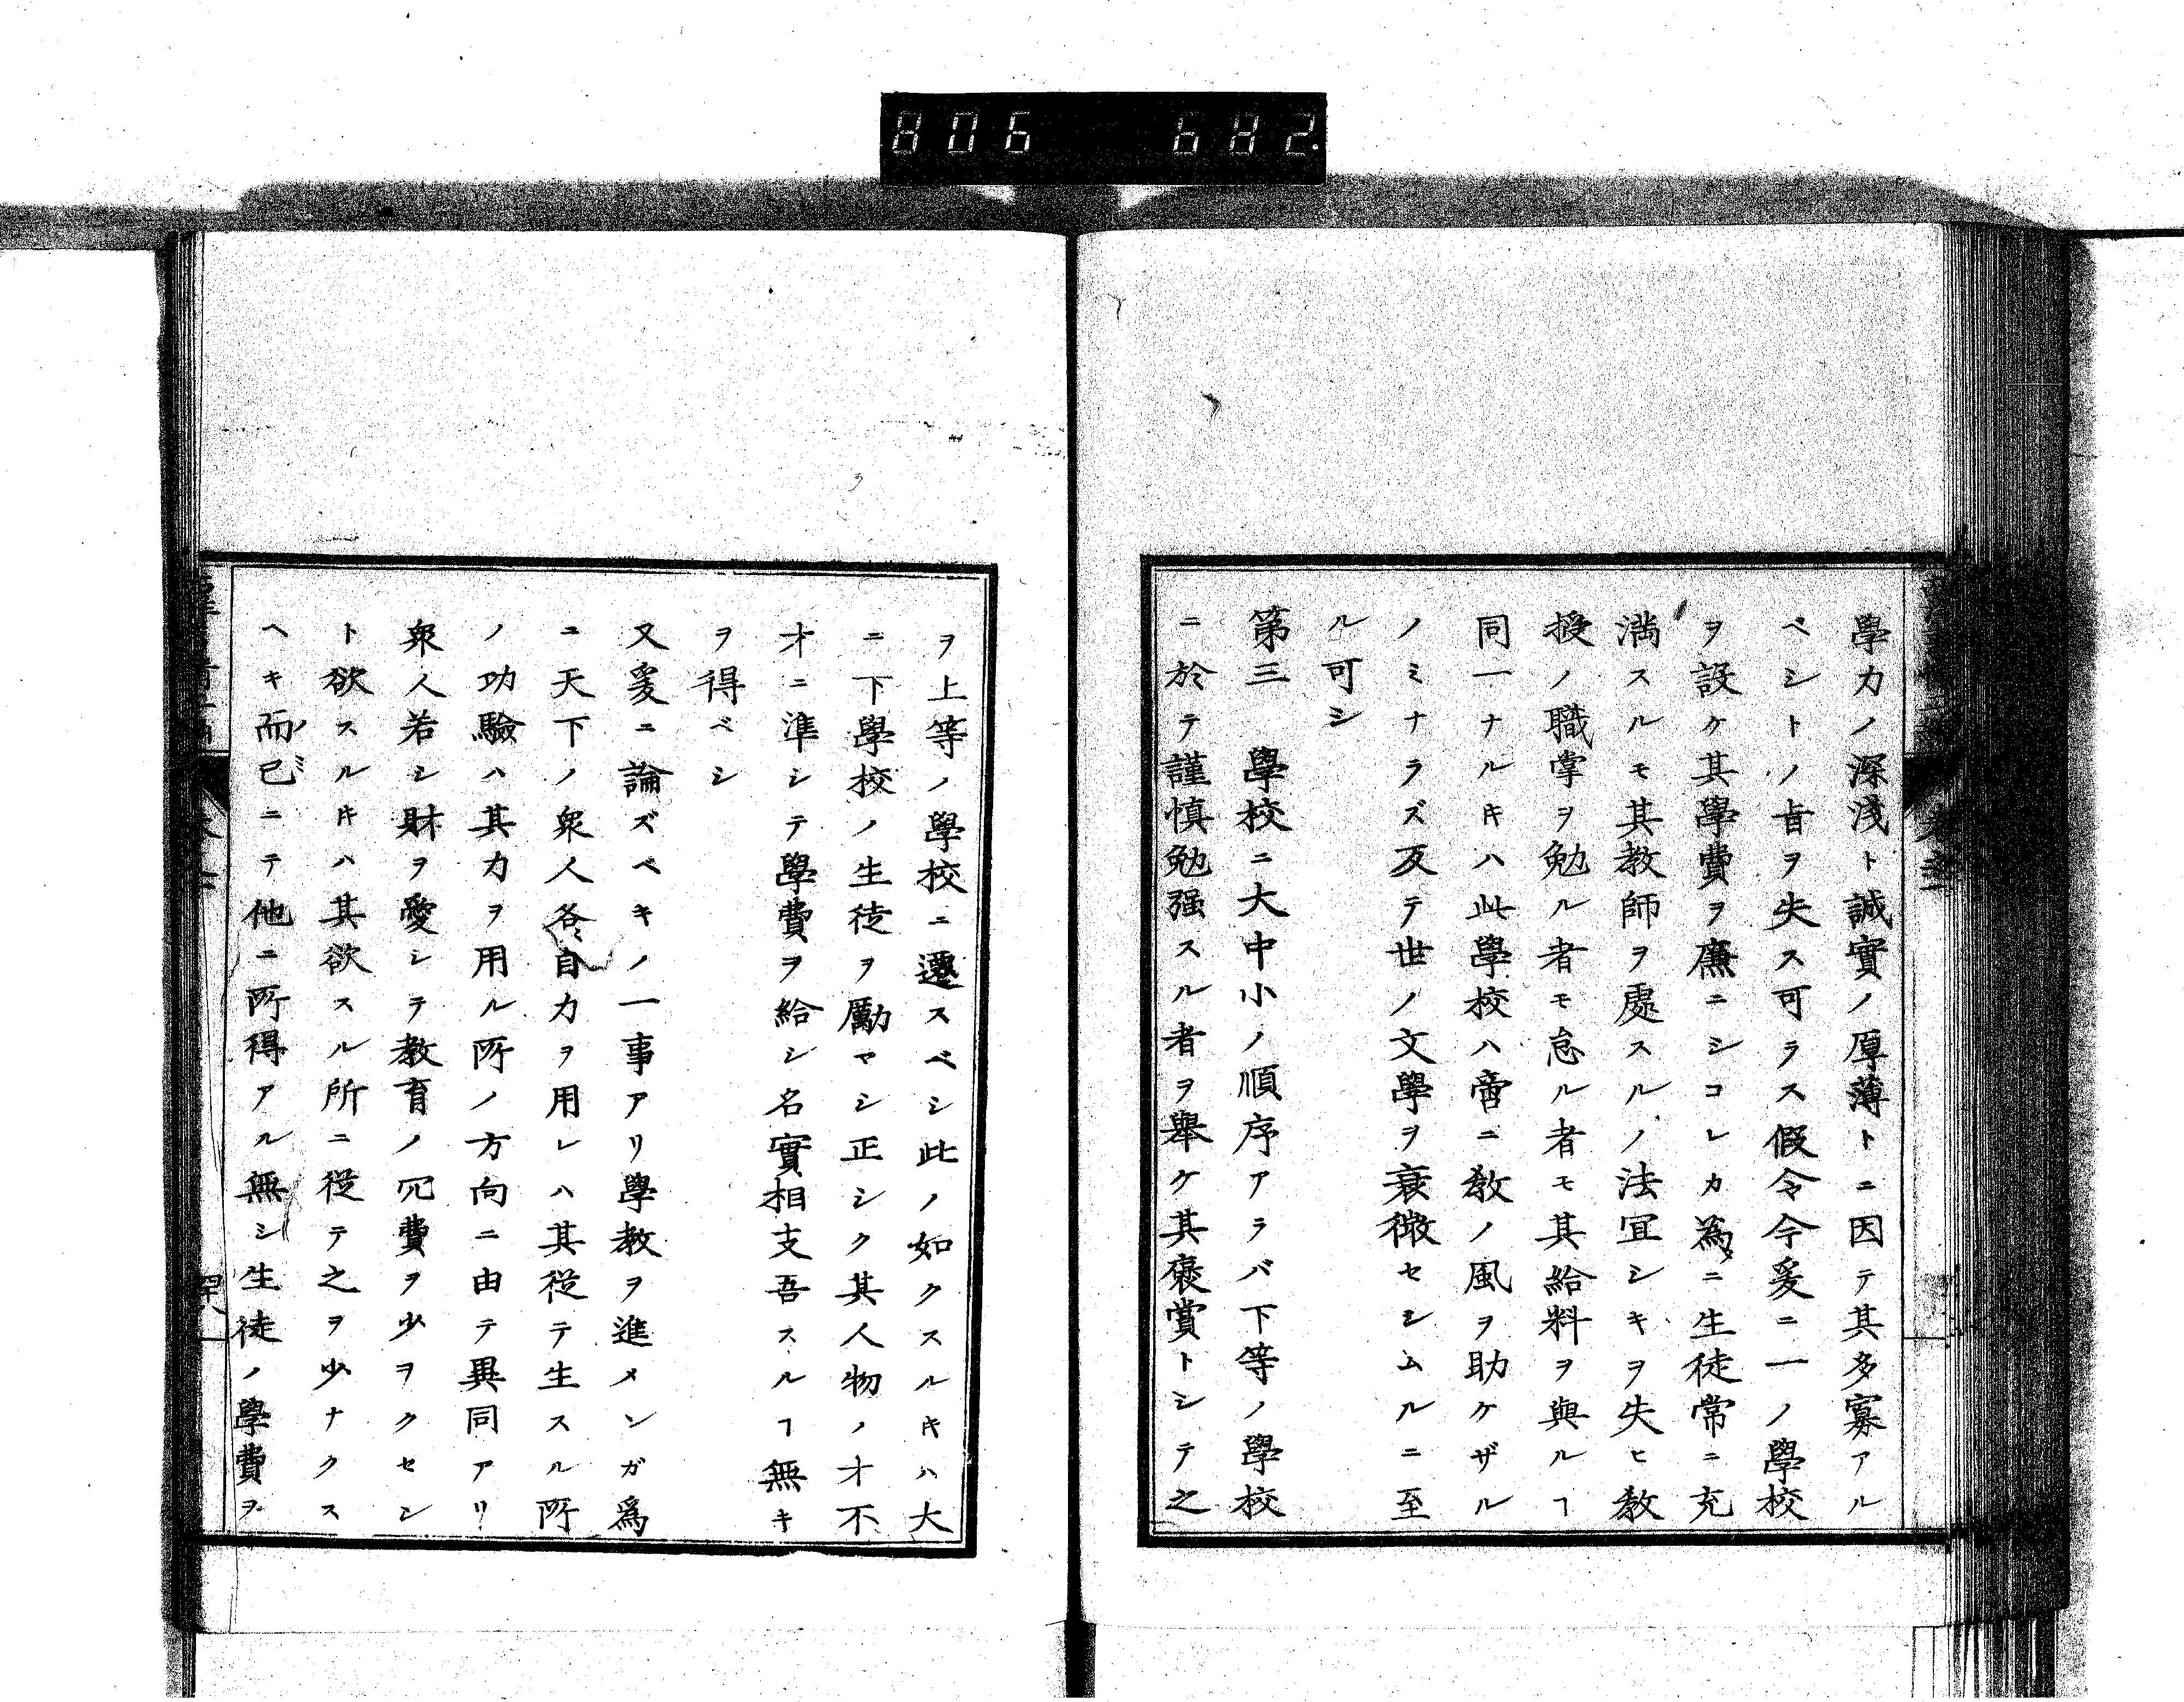 806 682
學力ノ深淺ト誠實ノ厚薄トニ因テ其多寡アル
ベシトノ旨ヲ失ス可ラス假令今爰ニ一ノ學校
ヲ設ケ其學費ヲ廉ニシコレカ為ニ生徒常ニ充
満スルモ其教師ヲ處スルノ法冝シキヲ失ヒ教
授ノ職掌ヲ勉ル者モ怠ル者モ其給料ヲ與ルヿ
同一ナルキハ此學校ハ啻ニ教ノ風ヲ助ケザル
ノミナラズ反テ世ノ文學ヲ衰微セシムルニ至
ル可シ
第三 學校ニ大中小ノ順序アラバ下等ノ學校
ニ於テ謹慎勉强スル者ヲ擧ケ其襃賞トシテ之
ヲ上等ノ學校ニ遷スベシ此ノ如クスルキハ大
ニ下學校ノ生徒ヲ勵マシ正シク其人物ノ才不
才ニ準シテ學費ヲ給シ名實相支吾スルヿ無キ
ヲ得ベシ
又爰ニ論ズベキノ一事アリ學教ヲ進メンガ爲
ニ天下ノ衆人各自力ヲ用レハ其從テ生スル所
ノ功驗ハ其力ヲ用ル所ノ方向ニ由テ異同アリ
衆人若シ財ヲ愛シテ教育ノ冗費ヲ少ヲクセン
ト欲スルキハ其欲スル所ニ從テ之ヲ少ナクス
ヘキ而已ニテ他ニ所得アル無シ生徒ノ學費ヲ